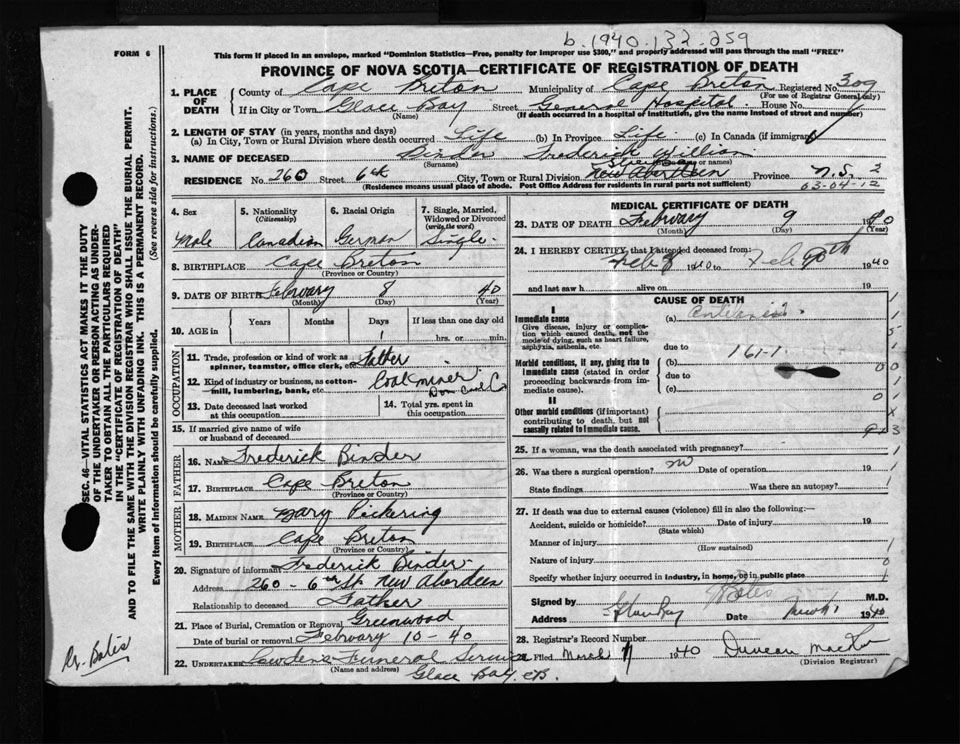 b. 1940.133.259
FORM 6
This form if placed in an envelope, marked "Dominion Statistics—Free, penalty for improper use $300," and properly addressed will pass through the mail "FREE"
PROVINCE OF NOVA SCOTIA—CERTIFICATE OF REGISTRATION OF DEATH
1. PLACE OF DEATH
County of Cape Breton Municipality of Cape Breton Registered No. 309
(For use of Registrar General only)
If in City or Town Glace Bay Street General Hospital House No.
(Name) (If death occurred in a hospital or institution, give the name instead of street and number)
2. LENGTH OF STAY (in years, months and days)
(a) In City, Town or Rural Division where death occurred Life (b) In Province Life (c) In Canada (if immigrant)
3. NAME OF DECEASED Binder Frederick William
(Surname) (Given name or names)
RESIDENCE No. 260 Street 6th City, Town or Rural Division New Aberdeen Province N.S. 2
(Residence means usual place of abode. Post Office Address for residents in rural parts not sufficient) 03-04-12
4. Sex
Male
5. Nationality (Citizenship)
Canadian
6. Racial Origin
German
7. Single, Married, Widowed or Divorced (write the word)
Single
8. BIRTHPLACE Cape Breton
(Province or Country)
9. DATE OF BIRTH February 8 40
(Month) (Day) (Year)
10. AGE in
Years Months Days If less than one day old
1 hrs. or min.
OCCUPATION
11. Trade, profession or kind of work as spinner, teamster, office clerk, etc. Father
12. Kind of industry or business, as cotton-mill, lumbering, bank, etc. Coal miner
Dom Coal Co
13. Date deceased last worked at this occupation
14. Total yrs. spent in this occupation
15. If married give name of wife or husband of deceased
FATHER
16. NAME Frederick Binder
17. BIRTHPLACE Cape Breton
(Province or Country)
MOTHER
18. MAIDEN NAME Mary Pickering
19. BIRTHPLACE Cape Breton
(Province or Country)
20. Signature of informant Frederick Binder
Address 260 - 6th St New Aberdeen
Relationship to deceased Father
21. Place of Burial, Cremation or Removal Greenwood
Date of burial or removal February 10-40
22. UNDERTAKER Funeral Service
(Name and address)
Glace Bay, CB.
MEDICAL CERTIFICATE OF DEATH
23. DATE OF DEATH February 9 1940
(Month) (Day) (Year)
24. I HEREBY CERTIFY, that I attended deceased from:
Feb 8 1940 to Feb 9th 1940
and last saw h alive on 19
CAUSE OF DEATH
I
Immediate cause (a)
Give disease, injury or complication which caused death, not the mode of dying, such as heart failure, asphyxia, asthenia, etc.
due to 161-1
Morbid conditions, if any, giving rise to immediate cause (stated in order proceeding backwards from immediate cause).
(b)
due to
(c)
II
Other morbid conditions (if important) contributing to death, but not causally related to immediate cause.
25. If a woman, was the death associated with pregnancy?
26. Was there a surgical operation? no Date of operation 19
State findings Was there an autopsy?
27. If death was due to external causes (violence) fill in also the following:—
Accident, suicide or homicide? Date of injury 19
(State which)
Manner of injury
(How sustained)
Nature of injury
Specify whether injury occurred in industry, in home, or in public place
Signed by Bates M.D.
Address Glace Bay Date 1940
28. Registrar's Record Number
Filed March 1940 Duncan
(Division Registrar)
SEC. 46—VITAL STATISTICS ACT MAKES IT THE DUTY
OF THE UNDERTAKER OR PERSON ACTING AS UNDERTAKER TO OBTAIN ALL THE PARTICULARS REQUIRED
IN THE "CERTIFICATE OF REGISTRATION OF DEATH"
AND TO FILE THE SAME WITH THE DIVISION REGISTRAR WHO SHALL ISSUE THE BURIAL PERMIT.
WRITE PLAINLY WITH UNFADING INK. THIS IS A PERMANENT RECORD.
Every item of information should be carefully supplied. (See reverse side for instructions.)
Dr. Bates